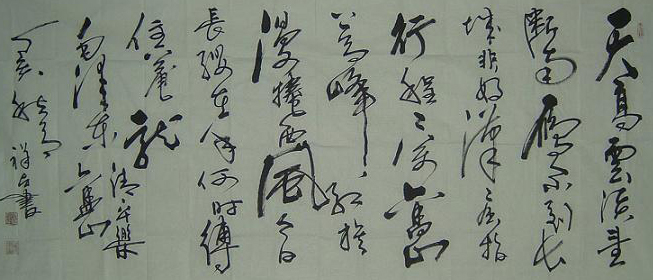 天高雲淡望
斷南雁不到長
城非好漢屈指
行程二萬六盤山
高峰紅旗
漫捲西風今日
長纓在手何時縛
住蒼龍清平樂
毛澤東六盤山
丁亥秋祥書